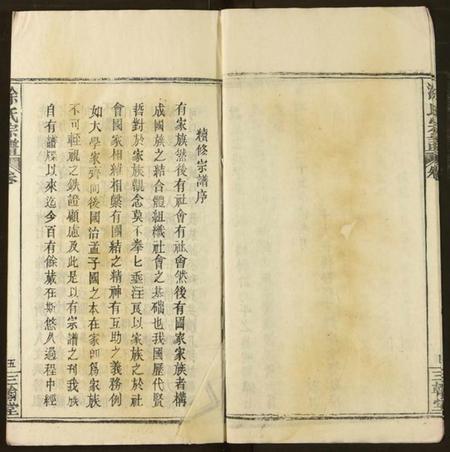 續修宗譜序
有家族然後有社會有社會然後有國家家族者構
成國族之結合體組織社會之基礎也我國歷代賢
哲對於家族觀念莫不拳七垂注良以家族之於社
會國家相維相繫有團結之精神有互助之義務例
如大學家齊而後國治孟子國之本在家即為家族
不可輕視之鉄證顧慮及此是以有宗譜之刊我族
自有譜牒以來迄今百有餘歲在斯悠久過程中經
涂氏宗譜
卷
五
三翰堂
涂氏宗譜
卷
三翰堂